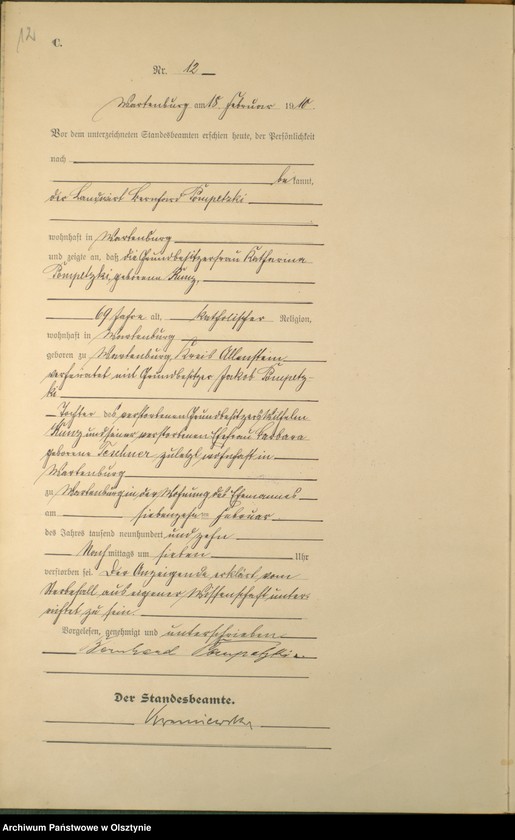 12
C.
Nr. 12
Wartenburg am 18. Februar 1910.
Vor dem unterzeichneten Standesbeamten erschien heute, der Persönlichkeit
nach
bekannt,
der Landwirt Bernhard Pompetzki
wohnhaft in Wartenburg
und zeigte an, daß die Grundbesitzerfrau Katharina
Pompetzki, geborene Kunz,
69 Jahre alt, katholischer Religion,
wohnhaft in Wartenburg
geboren zu Wartenburg, Kreis Allenstein
verheiratet mit Grundbesitzer Jakob Pompetz-
ki
Tochter des verstorbenen Grundbesitzers Wilhelm
Kunz und seiner verstorbenen Ehefrau Barbara
geborene zuletzt wohnhaft in
Wartenburg
zu Wartenburg in der Wohnung des Ehemannes
am siebenzehn Februar
des Jahres tausend neunhundert und zehn
Nachmittags um sieben Uhr
verstorben sei. Der Anzeigende erklärt, vom
Sterbefall aus eigener Wissenschaft unter-
richtet zu sein.
Vorgelesen, genehmigt und unterschrieben
Bernhard Pompetzki
Der Standesbeamte.
Archiwum Państwowe w Olsztynie